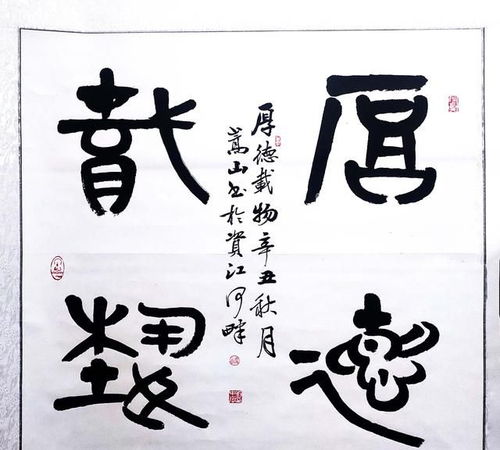 厚德
載物
厚德載物辛丑秋月
嵩山书於資江河畔